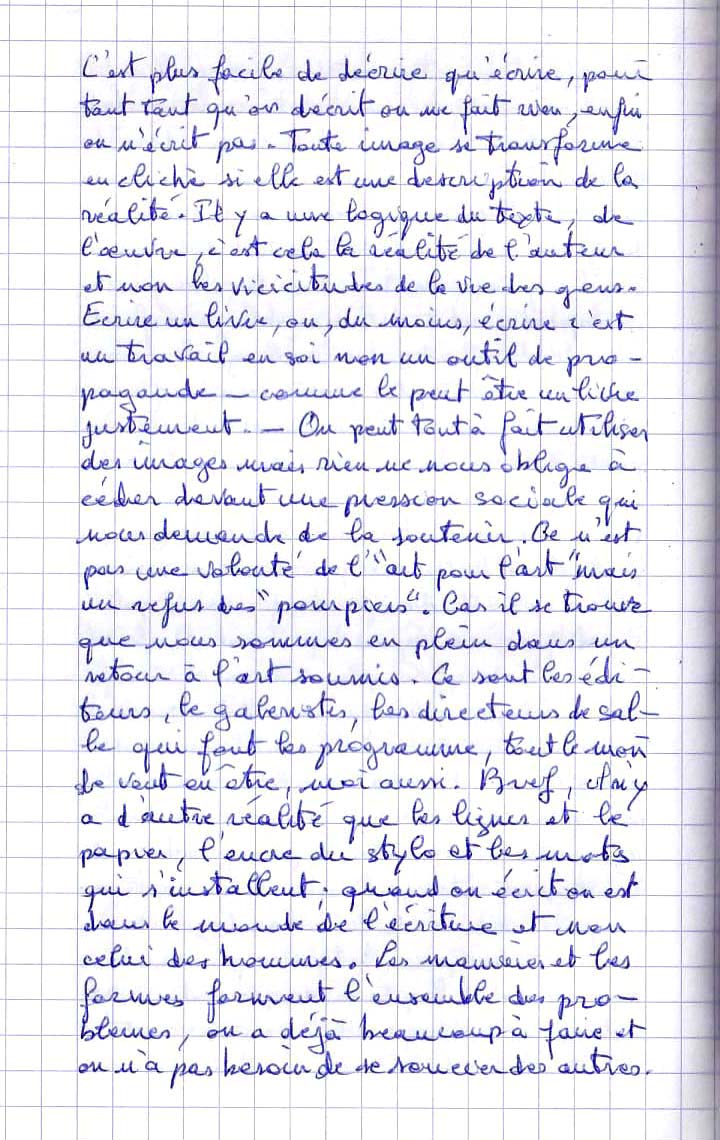 C'est plus facile de décrire qu'écrire, pour
tant tant qu'on décrit on ne fait rien, enfin
on n'écrit pas. Toute image se transforme
en cliché si elle est une description de la
réalité. Il y a une logique du texte, de
l'oeuvre, c'est cela la réalité de l'auteur
et non les vicicitudes de la vie des gens.
Ecrire un livre, ou, du moins, écrire c'est
un travail en soi non un outil de pro-
pagande - comme le peut être un livre
justement. - On peut tout à fait utiliser
des images mais rien ne nous oblige à
céder devant une pression sociale qui
nous demande de la soutenir. Ce n'est
pas une volonté de l'"art pour l'art" mais
un refus des "pompiers". Car il se trouve
que nous sommes en plein dans un
retour à l'art soumis. Ce sont les édi-
teurs, le galeristes, les directeurs de sal-
le qui font les programme, tout le mon
de veut en être, moi aussi. Bref, il n'y
a d'autre réalité que les lignes et le
papier, l'encre du stylo et les mots
qui s'installent; quand on écrit on est
dans le monde de l'écriture et non
celui des hommes. Les manières et les
formes forment l'ensemble des pro-
blemes, on a déjà beaucoup à faire et
on n'a pas besoin de se soucier des autres.